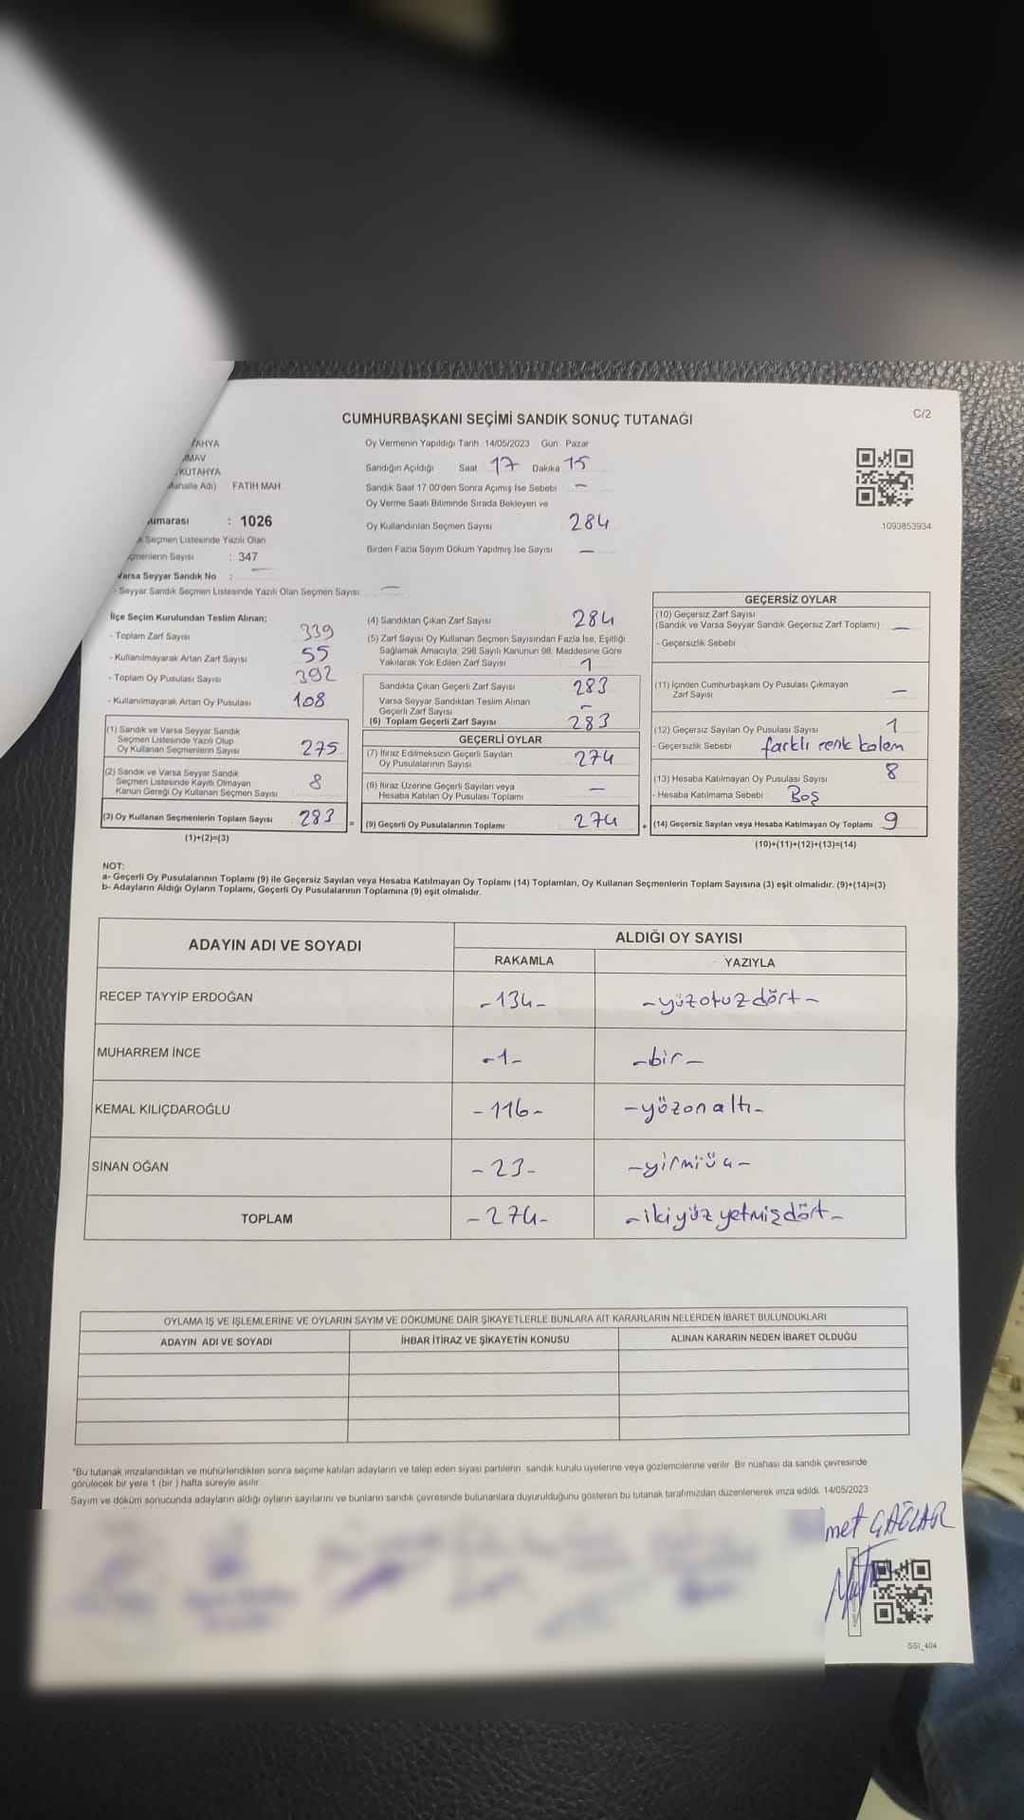 CUMHURBAŞKANI SEÇİMİ SANDIK SONUÇ TUTANAĞI
C/2
Oy Vermenin Yapıldığı Tarih 14/05/2023 Gün Pazar
Sandığın Açıldığı Saat 17 Dakika 15
KÜTAHYA
FATİH MAH
Sandık Saat 17:00'den Sonra Açımış İse Sebebi —
Oy Verme Saati Bitiminde Sırada Bekleyen ve
: 1026
Oy Kullandırılan Seçmen Sayısı 284
1093853934
Seçmen Listesinde Yazılı Olan
Sayısı : 347
Birden Fazla Sayım Döküm Yapılmış İse Sayısı —
Varsa Seyyar Sandık No : —
- Seyyar Sandık Seçmen Listesinde Yazılı Olan Seçmen Sayısı: —
İlçe Seçim Kurulundan Teslim Alınan;
- Toplam Zarf Sayısı 339
- Kullanılmayarak Artan Zarf Sayısı 55
- Toplam Oy Pusulası Sayısı 392
- Kullanılmayarak Artan Oy Pusulası 108
(1) Sandık ve Varsa Seyyar Sandık
Seçmen Listesinde Yazılı Olup
Oy Kullanan Seçmenlerin Sayısı 275
(2) Sandık ve Varsa Seyyar Sandık
Seçmen Listesinde Kayıtlı Olmayan
Kanun Gereği Oy Kullanan Seçmen Sayısı 8
(3) Oy Kullanan Seçmenlerin Toplam Sayısı 283 =
(1)+(2)=(3)
(4) Sandıktan Çıkan Zarf Sayısı 284
(5) Zarf Sayısı Oy Kullanan Seçmen Sayısından Fazla İse, Eşitliği
Sağlamak Amacıyla, 298 Sayılı Kanunun 98. Maddesine Göre
Yakılarak Yok Edilen Zarf Sayısı 1
Sandıkta Çıkan Geçerli Zarf Sayısı 283
Varsa Seyyar Sandıktan Teslim Alınan
Geçerli Zarf Sayısı –
(6) Toplam Geçerli Zarf Sayısı 283
GEÇERLİ OYLAR
(7) İtiraz Edilmeksizin Geçerli Sayılan
Oy Pusulalarının Sayısı 274
(8) İtiraz Üzerine Geçerli Sayılan veya
Hesaba Katılan Oy Pusulası Toplamı —
(9) Geçerli Oy Pusulalarının Toplamı 274 +
GEÇERSİZ OYLAR
(10) Geçersiz Zarf Sayısı
(Sandık ve Varsa Seyyar Sandık Geçersiz Zarf Toplamı) —
- Geçersizlik Sebebi
(11) İçinden Cumhurbaşkanı Oy Pusulası Çıkmayan
Zarf Sayısı —
(12) Geçersiz Sayılan Oy Pusulası Sayısı 1
- Geçersizlik Sebebi farklı renk kalem
(13) Hesaba Katılmayan Oy Pusulası Sayısı 8
- Hesaba Katılmama Sebebi Boş
(14) Geçersiz Sayılan veya Hesaba Katılmayan Oy Toplamı 9
(10)+(11)+(12)+(13)=(14)
NOT:
a- Geçerli Oy Pusulalarının Toplamı (9) ile Geçersiz Sayılan veya Hesaba Katılmayan Oy Toplamı (14) Toplamları, Oy Kullanan Seçmenlerin Toplam Sayısına (3) eşit olmalıdır. (9)+(14)=(3)
b- Adayların Aldığı Oyların Toplamı, Geçerli Oy Pusulalarının Toplamına (9) eşit olmalıdır.
ADAYIN ADI VE SOYADI
ALDIĞI OY SAYISI
RAKAMLA YAZIYLA
RECEP TAYYİP ERDOĞAN -134- -yüzotuzdört-
MUHARREM İNCE -1- -bir-
KEMAL KILIÇDAROĞLU -116- -yözonaltı-
SİNAN OĞAN -23- -yirmiüç-
TOPLAM -274- -ikiyüzyetmişdört-
OYLAMA İŞ VE İŞLEMLERİNE VE OYLARIN SAYIM VE DÖKÜMÜNE DAİR ŞİKAYETLERLE BUNLARA AİT KARARLARIN NELERDEN İBARET BULUNDUKLARI
ADAYIN ADI VE SOYADI İHBAR İTİRAZ VE ŞİKAYETİN KONUSU ALINAN KARARIN NEDEN İBARET OLDUĞU
*Bu tutanak imzalandıktan ve mühürlendikten sonra seçime katılan adayların ve talep eden siyasi partilerin sandık kurulu üyelerine veya gözlemcilerine verilir. Bir nüshası da sandık çevresinde
görülecek bir yere 1 (bir) hafta süreyle asılır.
Sayım ve döküm sonucunda adayların aldığı oyların sayılarını ve bunların sandık çevresinde bulunanlara duyurulduğunu gösteren bu tutanak tarafımızdan düzenlenerek imza edildi. 14/05/2023
met ÇAĞLAR
SSI_404